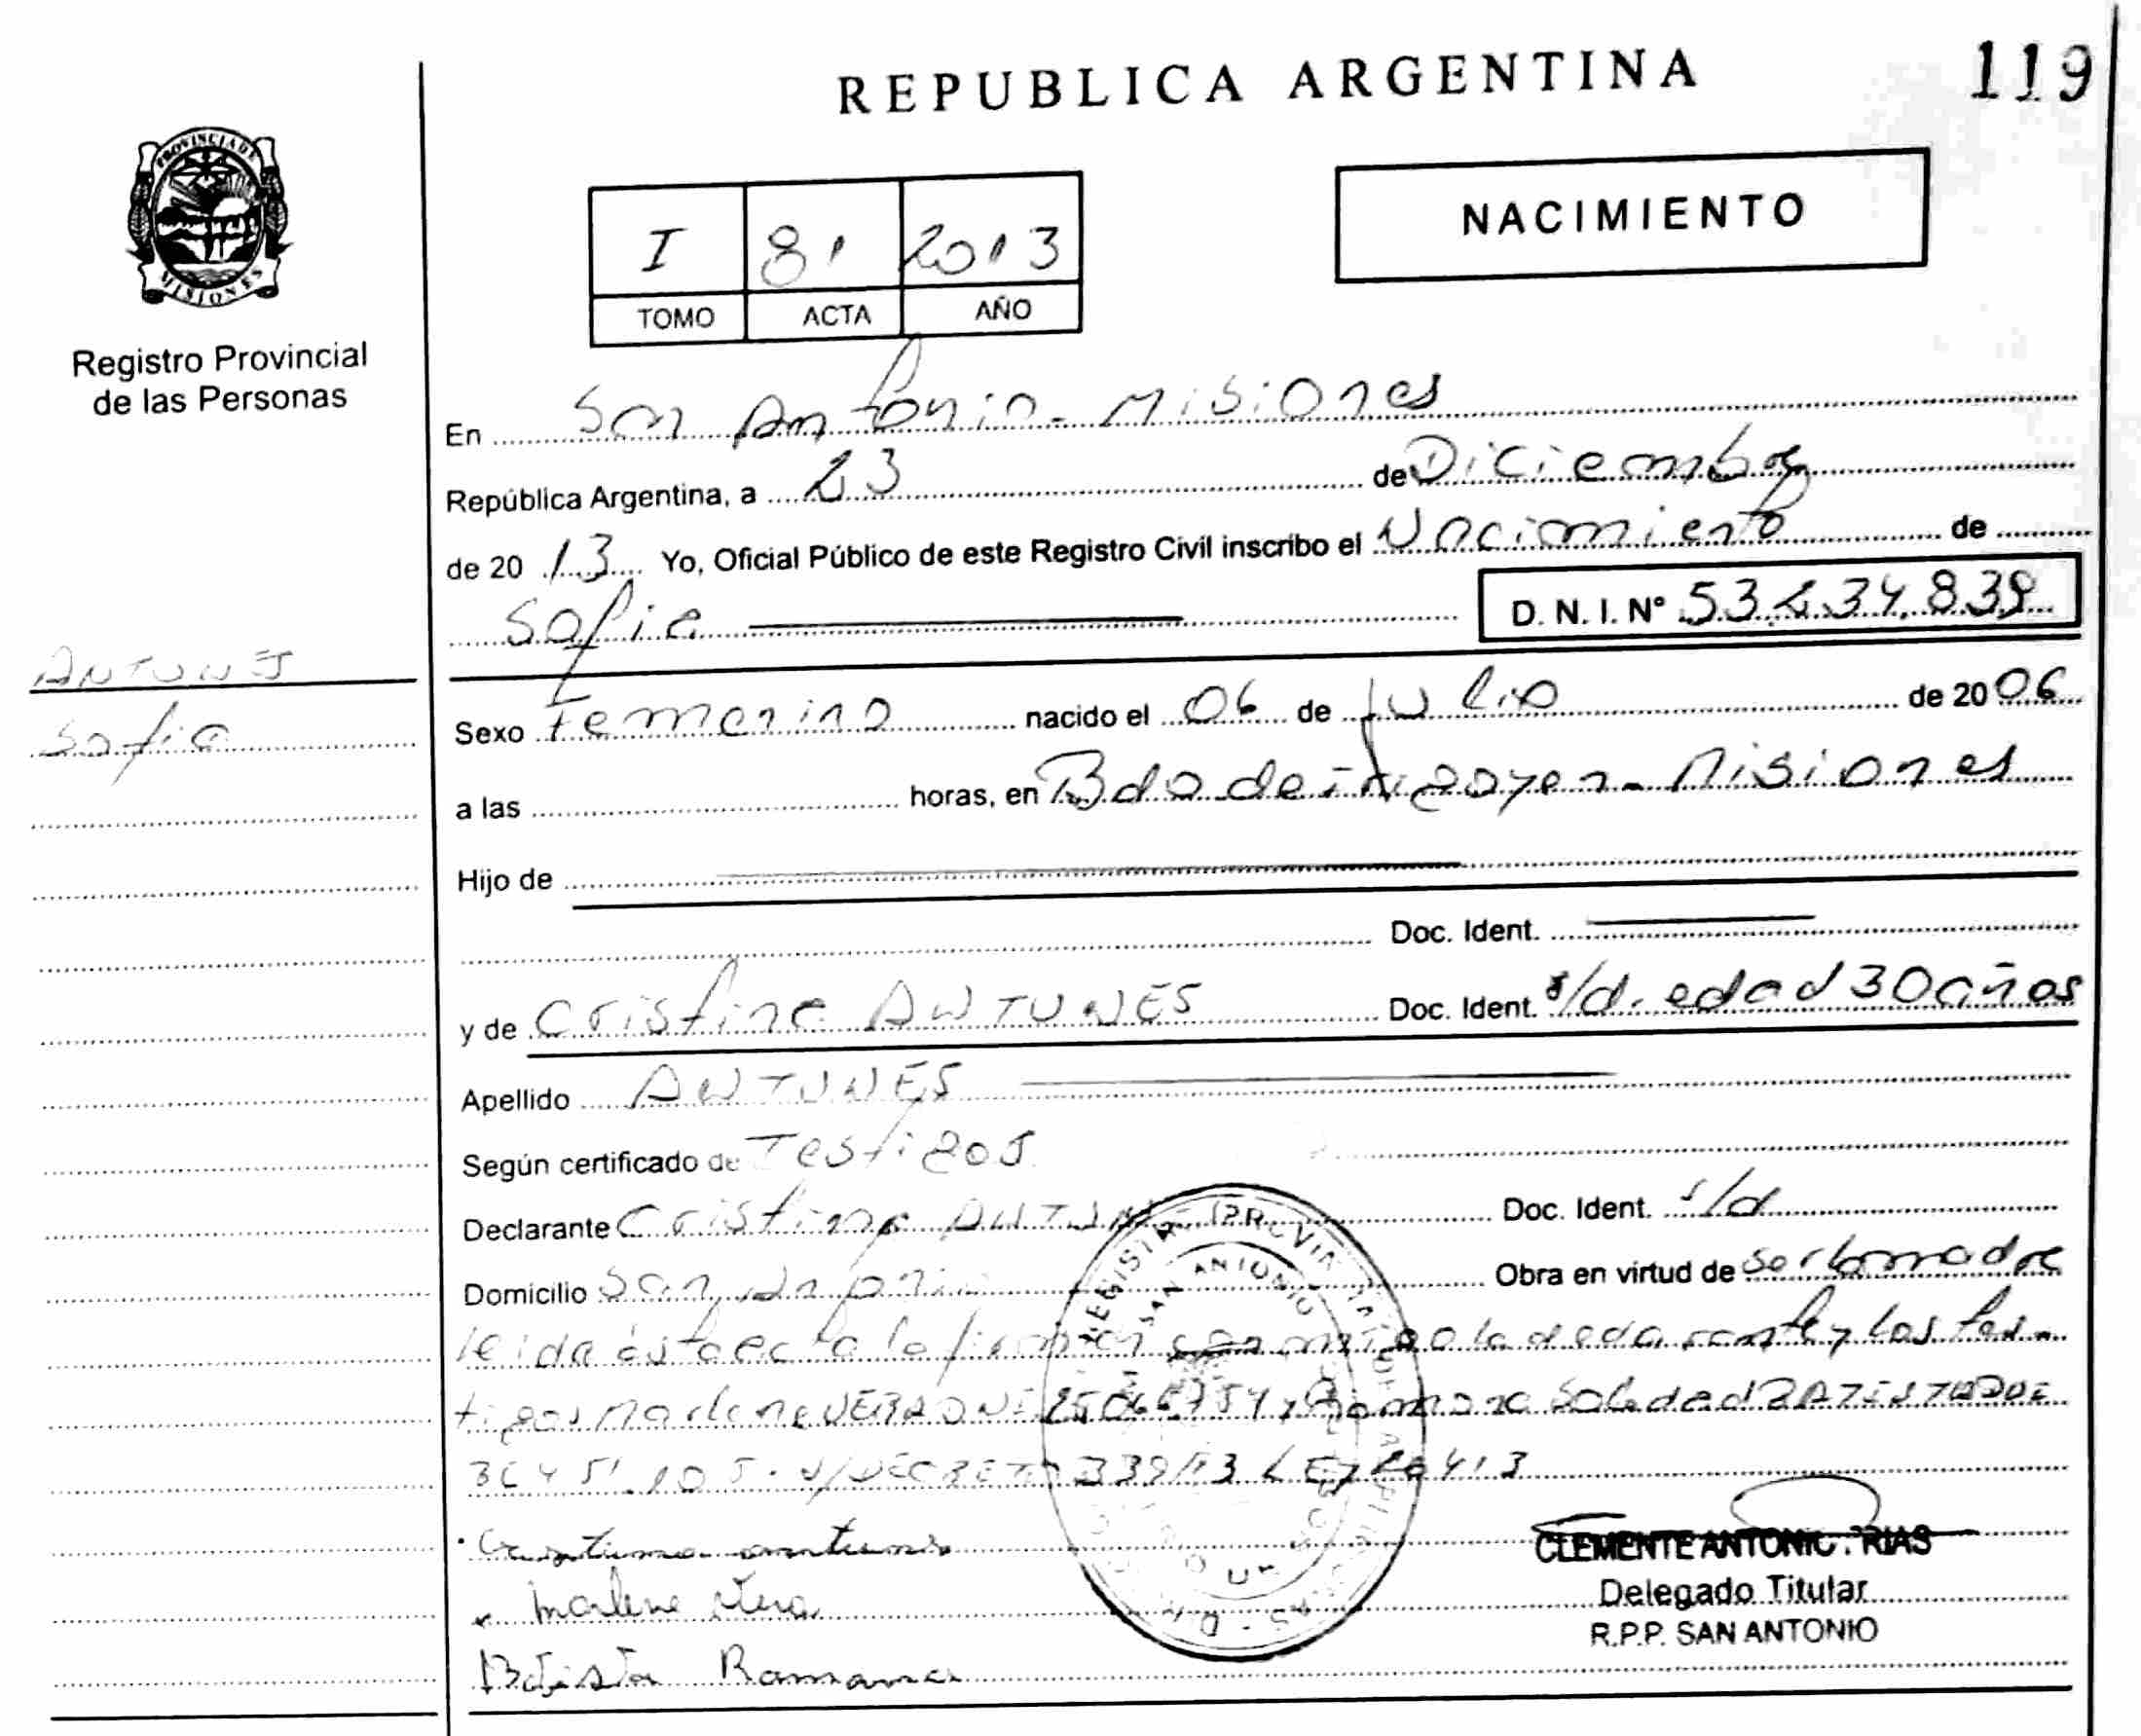 REPUBLICA ARGENTINA
119
PROVINCIA DE
MISIONES
Registro Provincial
de las Personas
I 81 2013
TOMO ACTA AÑO
NACIMIENTO
En San Antonio - Misiones
República Argentina, a 23 de Diciembre
de 20 13 Yo, Oficial Público de este Registro Civil inscribo el Nacimiento de
Sofia D. N. I. Nº 53.234.839
ANTUNES
Sofia
Sexo Femenino nacido el 06 de Julio de 20 06
a las horas, en Bdo de Irigoyen - Misiones
Hijo de
Doc. Ident.
y de Cristina ANTUNES Doc. Ident. s/d. edad 30 años
Apellido ANTUNES
Según certificado de Testigos
Declarante Cristina ANTUNES Doc. Ident. s/d
Domicilio San Antonio Obra en virtud de ser la madre
leida esta acta la firman conmigo la declarante y los tes-
tigos Marlene VERA DNI Romana Soledad BATISTA DNI
DECRETO 339/13 LEY 20413
Cristina antunes
Marlene Vera
Batista Romana
SAN ANTONIO
CLEMENTE ANTONIO
Delegado Titular
R.P.P. SAN ANTONIO